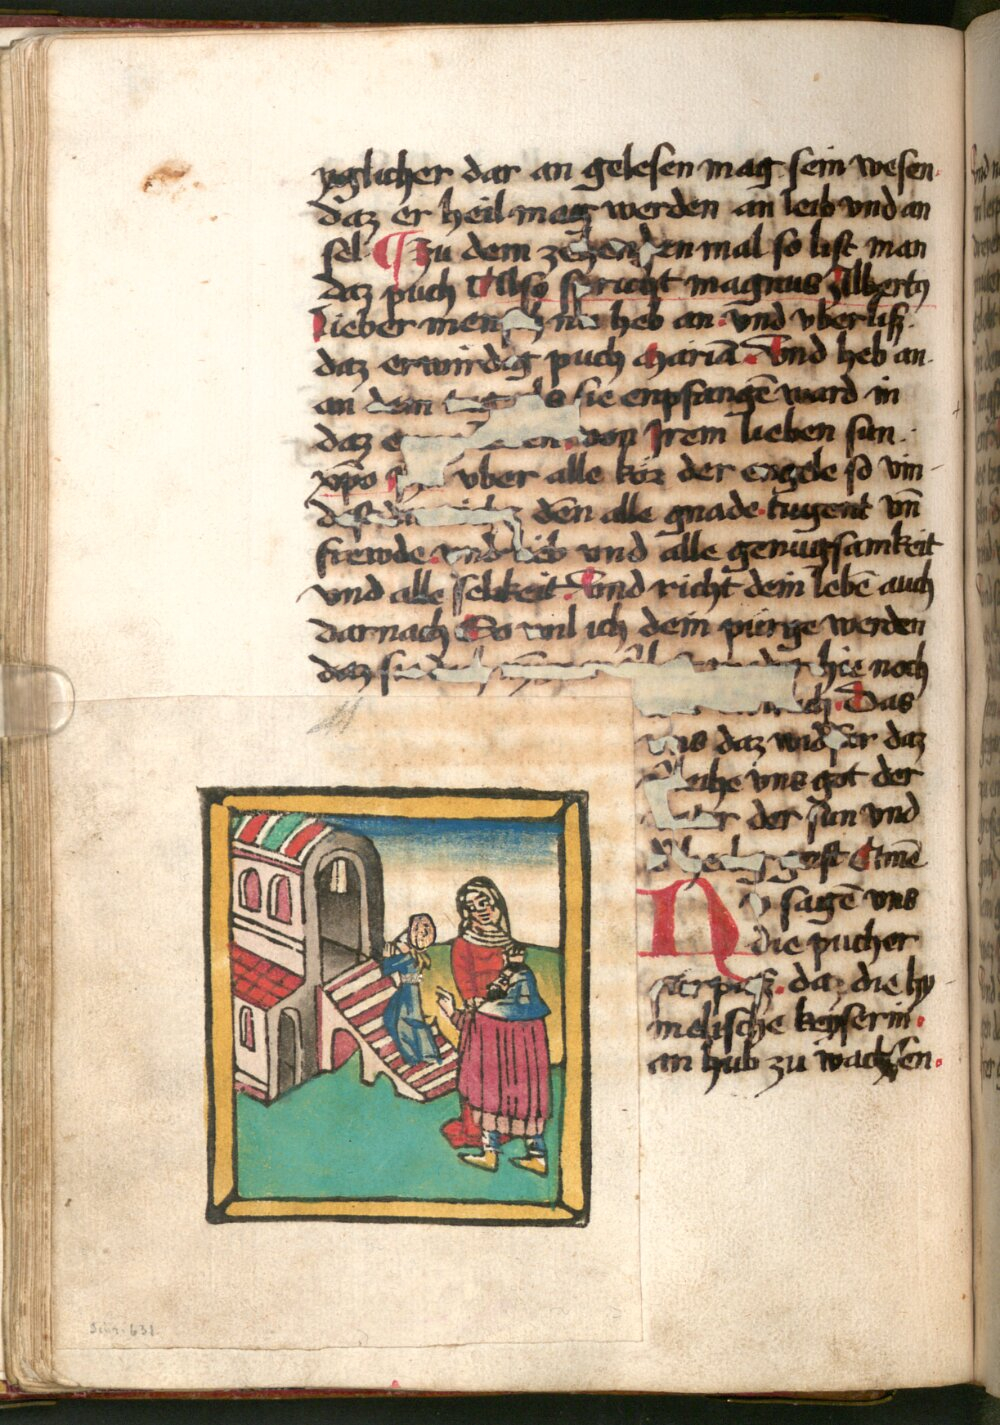 yglicher dar an gelesen mag sein wesen.
daz er heil mag werden an leib vnd an
sel. Zu dem en mal so list man
daz puch Also spricht magnus Alberty
lieber mensch nu heb an. vnd vberliß.
daz erwirdig puch Mariā. Vnd heb an.
an dem sie enpfangē ward in
daz von Jrem lieben sun.
xp̄o vber alle kör der engele so vin
dest dēn alle gnade. tugent vn̄
frewde. vnd lieb vnd alle genugsamkeit
vnd alle selikeit. Vnd richt dein lebē auch
darnach So wil ich dein pürge werden
daz hie noch
Das
daz wider daz
vns got der
der sun vnd
geist Amē
sagē vns
die pucher
daz die hy
melische keyserin.
an hub zu wachsen.
Schr. 631.